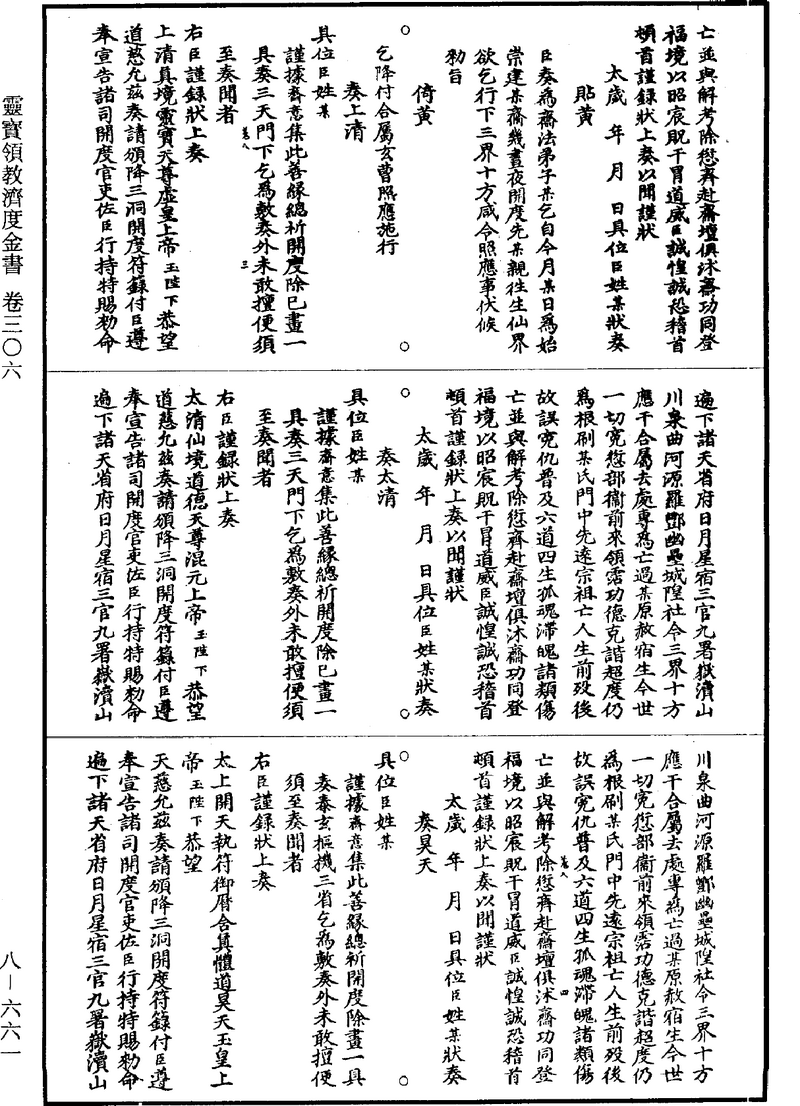 亡並與解考除愆齊赴齋壇俱沐齋功同登
福境以昭宸貺干冒道威臣誠惶誠恐稽首
頓首謹錄狀上奏以聞謹狀
太歲 年 月 日具位臣姓某狀奏
貼黃
臣奏爲齋法弟子某乞自今月某日爲始
崇建某齋幾晝夜開度先某親徃生仙界
欲乞行下三界十方咸令照應事伏候
勑旨
倚黃
乞降付合屬玄曹照應施行
奏上清
具位臣姓某
謹據齋意集此善緣總祈開度除已畫一
具奏三天門下乞爲敷奏外未敢擅便須
至奏聞者
右臣謹録狀上奏
上清真境靈寶天尊虛皇上帝玉陛下恭望
道慈允茲奏請頒降三洞開度符籙付臣遵
奉宣告諸司開度官吏佐臣行持特賜勑命
遍下諸天省府日月星宿三官九署嶽瀆山
川泉曲河源羅酆幽壘城隍社令三界十方
應干合屬去處專爲亡過某原赦宿生今世
一切寃愆部衞前來領霑功德克諧超度仍
爲根刷某氏門中先遠宗祖亡人生前歿後
故誤寃仇普及六道四生孤魂滯魄諸類傷
亡並與解考除愆齊赴齋壇俱沐齋功同登
福境以昭宸貺干冒道威臣誠惶誠恐稽首
頓首謹錄狀上奏以聞謹狀
太歲 年 月 日具位臣姓某狀奏
奏太清
具位臣姓某
謹據齋意集此善緣總祈開度除已畫一
具奏三天門下乞爲敷奏外未敢擅便須
至奏聞者
右臣謹録狀上奏
太清仙境道德天尊混元上帝玉陛下恭望
道慈允茲奏請頒降三洞開度符籙付臣遵
奉宣告諸司開度官吏佐臣行持特賜勑命
遍下諸天省府日月星宿三官九署嶽瀆山
川泉曲河源羅酆幽壘城隍社令三界十方
應干合屬去處專爲亡過某原赦宿生今世
一切寃愆部衞前來領霑功德克諧超度仍
爲根刷某氏門中先遠宗祖亡人生前歿後
故誤寃仇普及六道四生孤魂滯魄諸類傷
亡並與解考除愆齊赴齋壇俱沐齋功同登
福境以昭宸貺干冒道威臣誠惶誠恐稽首
頓首謹錄狀上奏以聞謹狀
太歲 年 月 日具位臣姓某狀奏
奏昊天
具位臣姓某
謹據齋意集此善緣總祈開度除畫一具
奏泰玄樞機三省乞爲敷奏外未敢擅便
須至奏聞者
右臣謹録狀上奏
太上開天執符御曆含真體道昊天玉皇上
帝玉陛下恭望
天慈允茲奏請頒降三洞開度符籙付臣遵
奉宣告諸司開度官吏佐臣行持特賜勑命
遍下諸天省府日月星宿三官九署嶽瀆山
靈寶領教濟度金書 卷三〇六
八—六六一